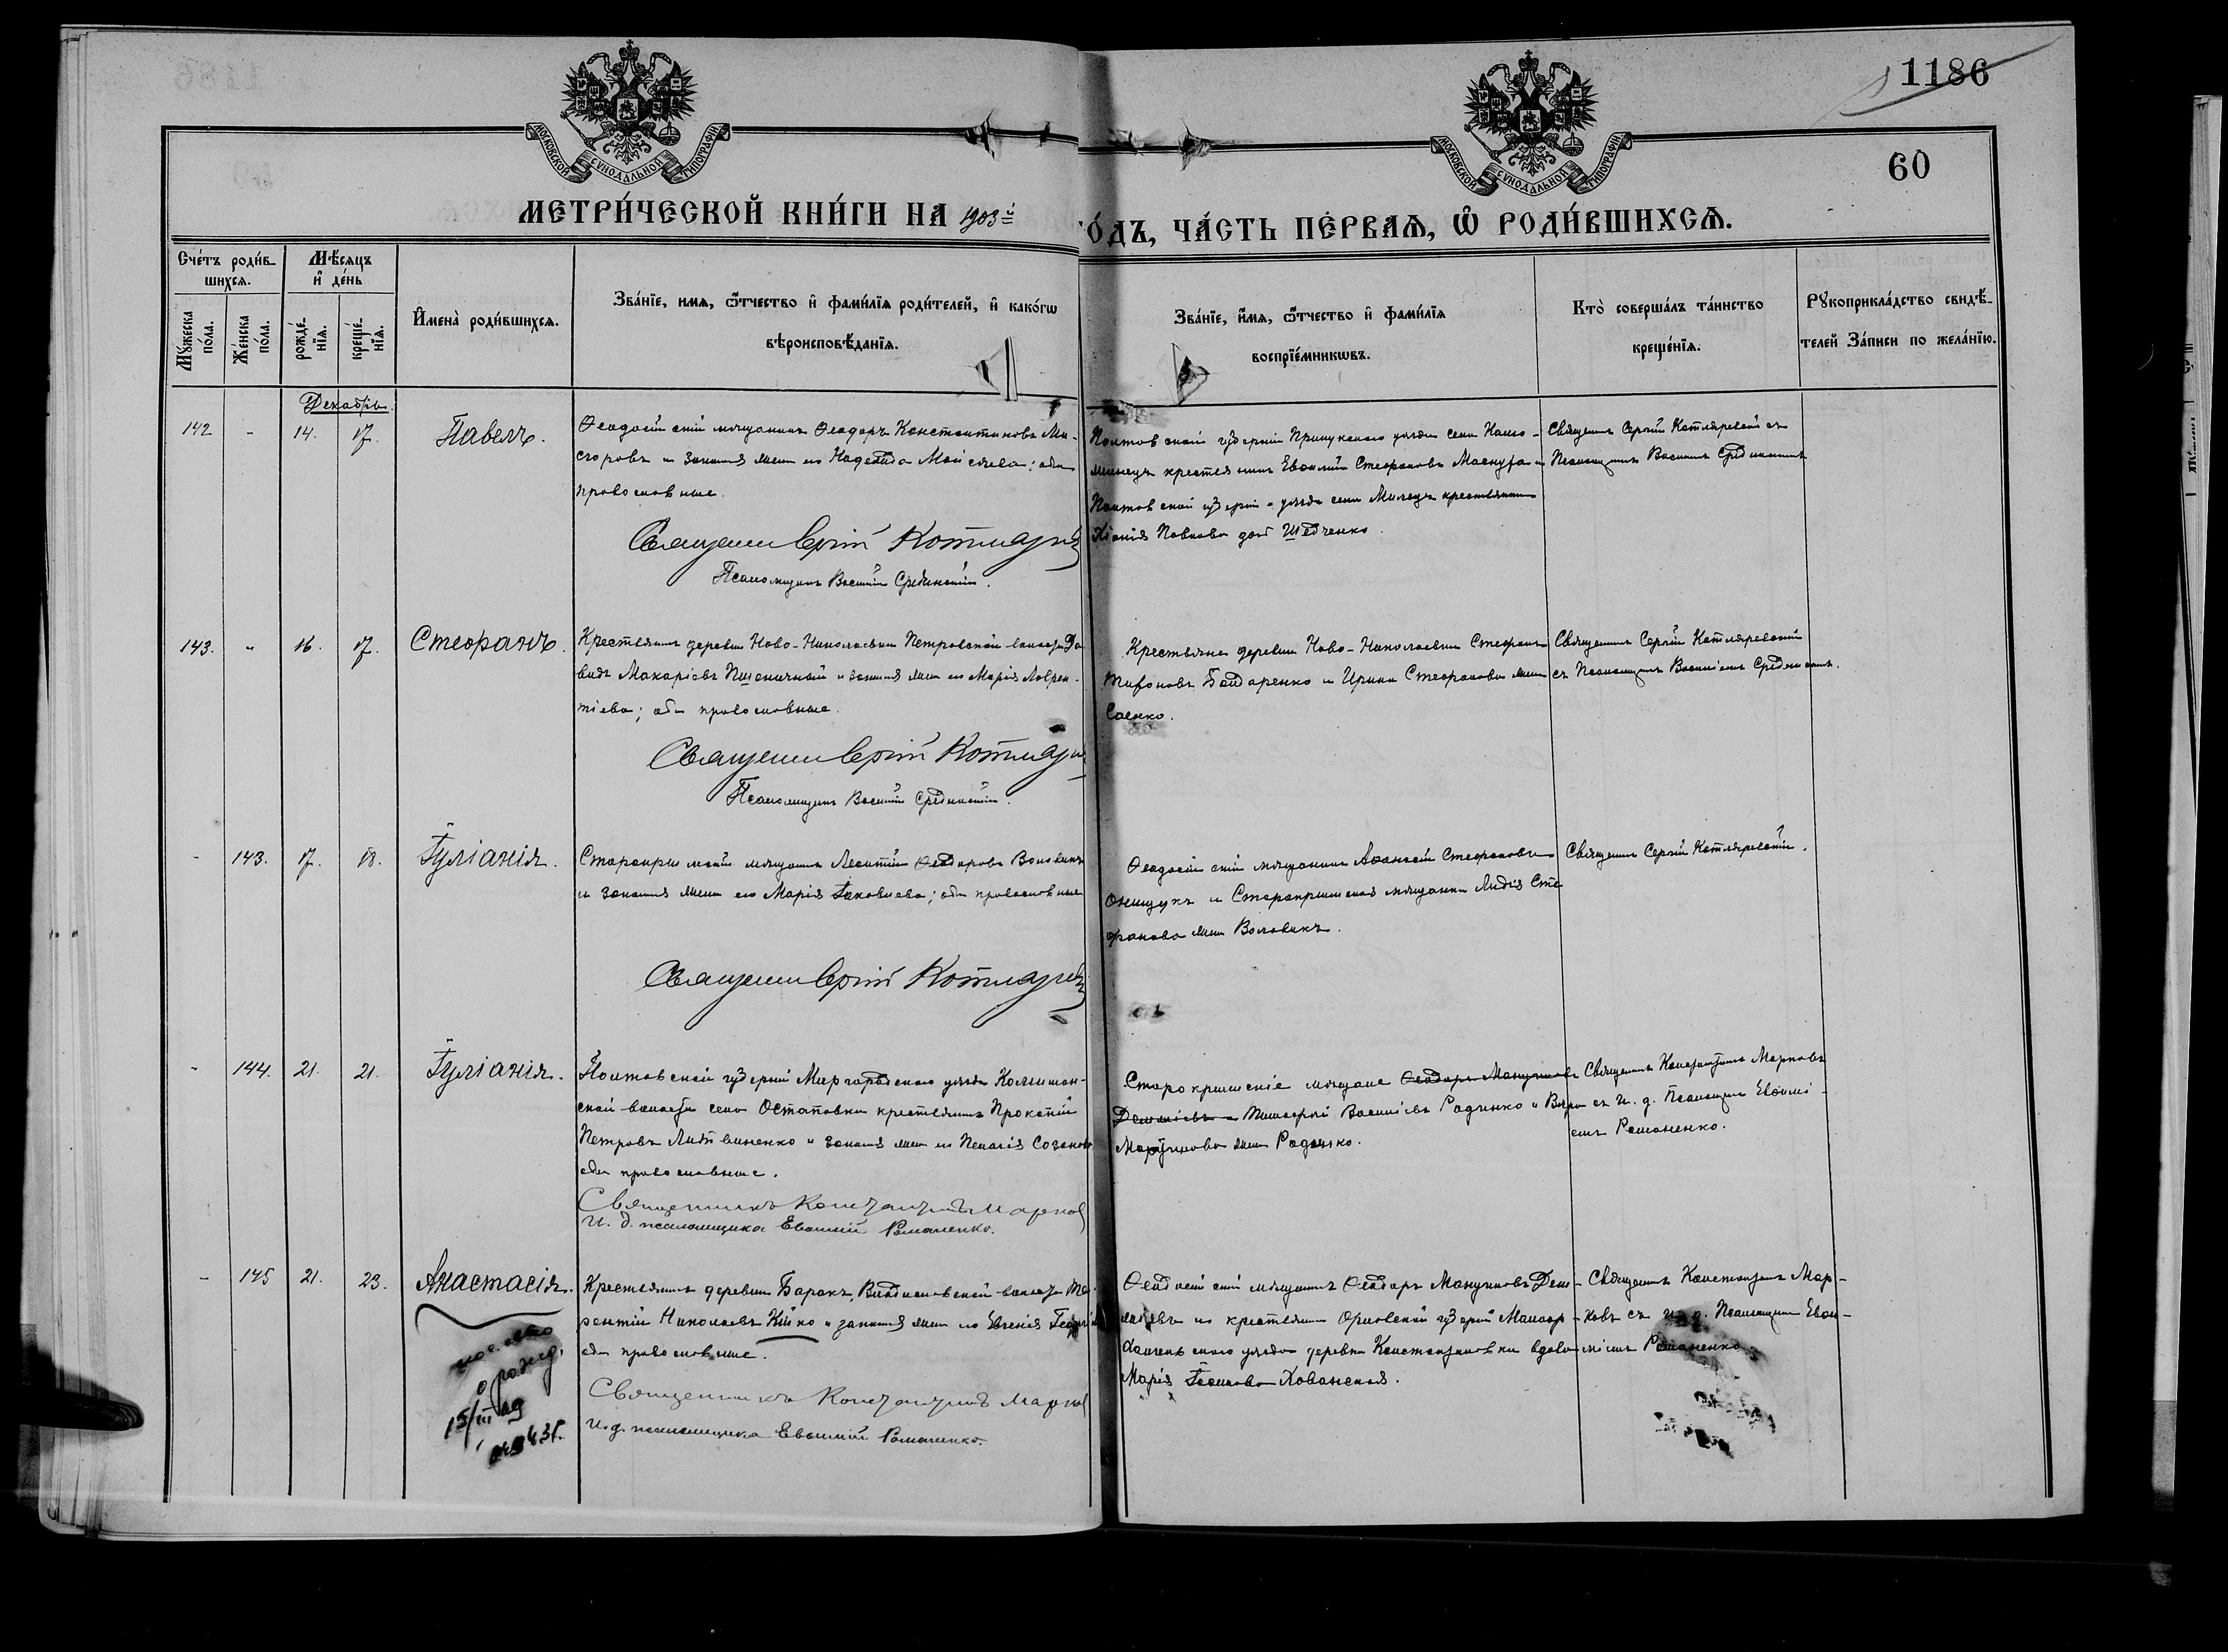 1186
60
МОСКОВСКОЙ СѴНОДАЛЬНОЙ ТИПОГРАФІИ
МОСКОВСКОЙ СѴНОДАЛЬНОЙ ТИПОГРАФІИ
МЕТРИ́ЧЕСКОЙ КНИ́ГИ НА 1903й
ГО́ДЪ, ЧА́СТЬ ПЕ́РВАѦ, Ѽ РОДИ́ВШИХСѦ.
Сче́тъ роди́в-
шихсѧ.
Мꙋ́жеска по́ла.
Же́нска по́ла.
Мѣ́сѧцъ
и҆ де́нь
рожде́-
нїѧ.
креще́-
нїѧ.
И҆мена̀ роди́вшихсѧ.
Зва́нїе, имѧ, ѻ҆́тчество и҆ фами́лїѧ роди́телей, и҆ како́гѡ
вѣроисповѣ́данїѧ.
Зва́нїе, и҆́мѧ, ѻ҆́тчество и҆ фами́лїѧ
воспрїе́мникѡвъ.
Кто̀ соверша́лъ та́инство
креще́нїѧ.
Рꙋкоприкла́дство свидѣ́-
телей За́писи по жела́нїю.
Декабрь.
142 - 14. 17. Павелъ.
Ѳеодосійскій мѣщанинъ Ѳеодоръ Константиновъ Ми-
соровъ и законная жена его Надежда Моисеева: оба
православные.
Священникъ Сергій Котляревскій
Псаломщикъ Василій Срединскій.
Полтавской губерніи Прилукскаго уѣзда села
крестьянинъ Евѳимій Стефановъ и
Полтавской губерніи и уѣзда села крестьянка
Павлова дочь Шевченко.
Священникъ Сергій Котляревскій съ
Псаломщикъ Василій Срединскимъ
143. " 16. 17. Стефанъ.
Крестьянинъ деревни Ново-Николаевки Петровской волости Да-
видъ Макаріевъ Пшеничный и законная жена его Марія Лаврен-
тіева; оба православные.
Священникъ Сергій Котляревскій
Псаломщикъ Василій Срединскій.
Крестьяне деревни Ново-Николаевки Стефанъ
Бондаренко и Ирина Стефанова жена
Саенко.
Священникъ Сергій Котляревскій
съ Псаломщикъ Василіемъ Срединскимъ.
- 143. 17. 18. Іуліанія.
Старокрымскій мѣщанинъ Леонтій Ѳеодоровъ Воловикъ
и законная жена его Марія Іаковлева; оба православные
Священникъ Сергій Котляревскій
Ѳеодосійскій мѣщанинъ Аѳанасій Стефановъ
Онищукъ и Старокрымская мѣщанка Лидія Сте-
фанова жена Воловикъ.
Священникъ Сергій Котляревскій.
- 144. 21. 21. Іуліанія.
Полтавской губерніи Миргородскаго уѣзда Комышан-
ской волости села Остаповки крестьянинъ Прокопій
Петровъ Литвиненко и законная жена его Пелагія Созонова
оба православные.
Священникъ Константинъ Марковъ
И. д. псаломщика Евѳимій Романенко.
Старокрымскіе мѣщане Ѳеодоръ
Василіевъ Радченко и Вѣра
жена Радченко.
Священникъ Константинъ Марковъ
съ и. д. Псаломщика Евѳимі-
емъ Романенко.
- 145 21. 23. Анастасія.
Крестьянинъ деревни Баракъ, Владиславской волости Те-
рентій Николаевъ Кійко и законная жена его Евгенія Георгіева
оба православные.
Священникъ Константинъ Марковъ
И. д. псаломщика Евѳимій Романенко.
о рожд.
15/III 29
Ѳеодосійскій мѣщанинъ Ѳеодоръ Дем-
и крестьянка Орловской губерніи Малоар-
хангельскаго уѣзда деревни Константиновки вдова
Марія Хованская.
Священникъ Константинъ Мар-
ковъ съ и. д. Псаломщика Евѳи-
міемъ Романенко